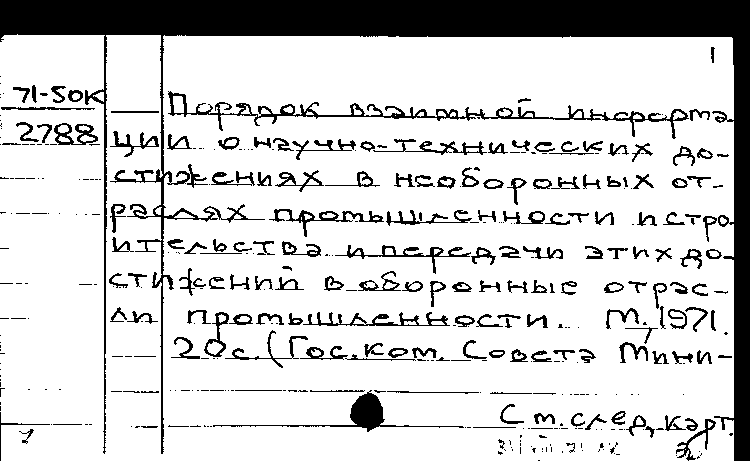 1
71-50К
2788
Порядок взаимной информа
ции о научно-технических до-
стижениях в необоронных от-
раслях промышленности и стро
ительства и передачи этих до-
стижений в оборонные отрас-
ли промышленности. М., 1971.
20с. (Гос.ком. Совета Мини-
См. след. карт.